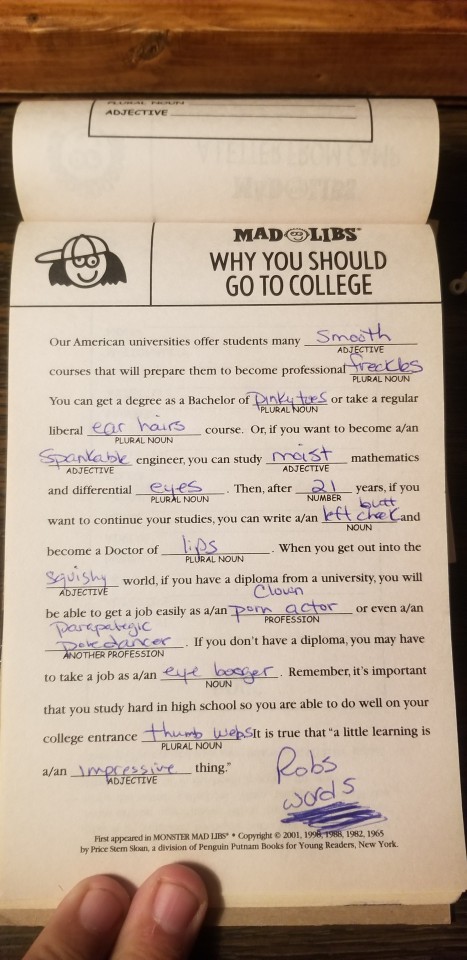 ADJECTIVE
MAD LIBS®
WHY YOU SHOULD
GO TO COLLEGE
Our American universities offer students many smooth
ADJECTIVE
courses that will prepare them to become professional freckles
PLURAL NOUN
You can get a degree as a Bachelor of pinky toes or take a regular
PLURAL NOUN
liberal ear hairs course. Or, if you want to become a/an
PLURAL NOUN
Spankable engineer, you can study moist mathematics
ADJECTIVE ADJECTIVE
and differential eyes. Then, after 21 years, if you
PLURAL NOUN NUMBER
butt
want to continue your studies, you can write a/an left cheek and
NOUN
become a Doctor of lips. When you get out into the
PLURAL NOUN
Squishy world, if you have a diploma from a university, you will
ADJECTIVE
Clown
be able to get a job easily as a/an porn actor or even a/an
PROFESSION
Parapalegic
Pole dancer. If you don't have a diploma, you may have
ANOTHER PROFESSION
to take a job as a/an eye booger. Remember, it's important
NOUN
that you study hard in high school so you are able to do well on your
college entrance thumb webs It is true that "a little learning is
PLURAL NOUN
a/an impressive thing."
ADJECTIVE
Robs
words
First appeared in MONSTER MAD LIBS® • Copyright © 2001, 1998, 1988, 1982, 1965
by Price Stern Sloan, a division of Penguin Putnam Books for Young Readers, New York.